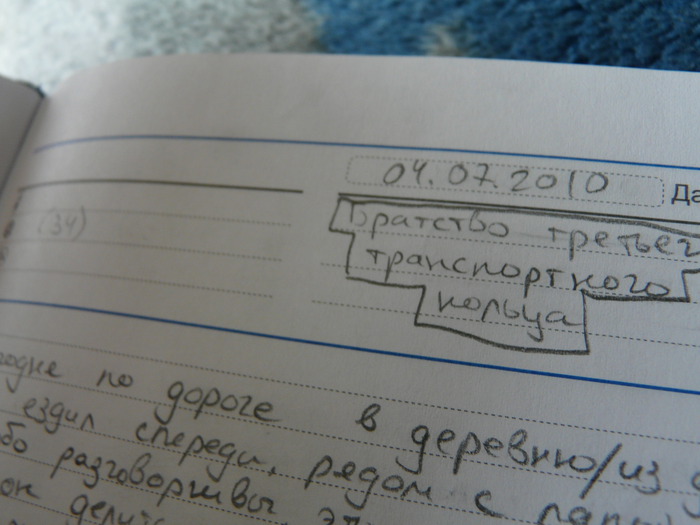 04.07.2010 Да
(34)
Братство третьег
транспортного
кольца
годне по дороге в деревню/из
ездил спереди, рядом с
бо разговорчивы
он